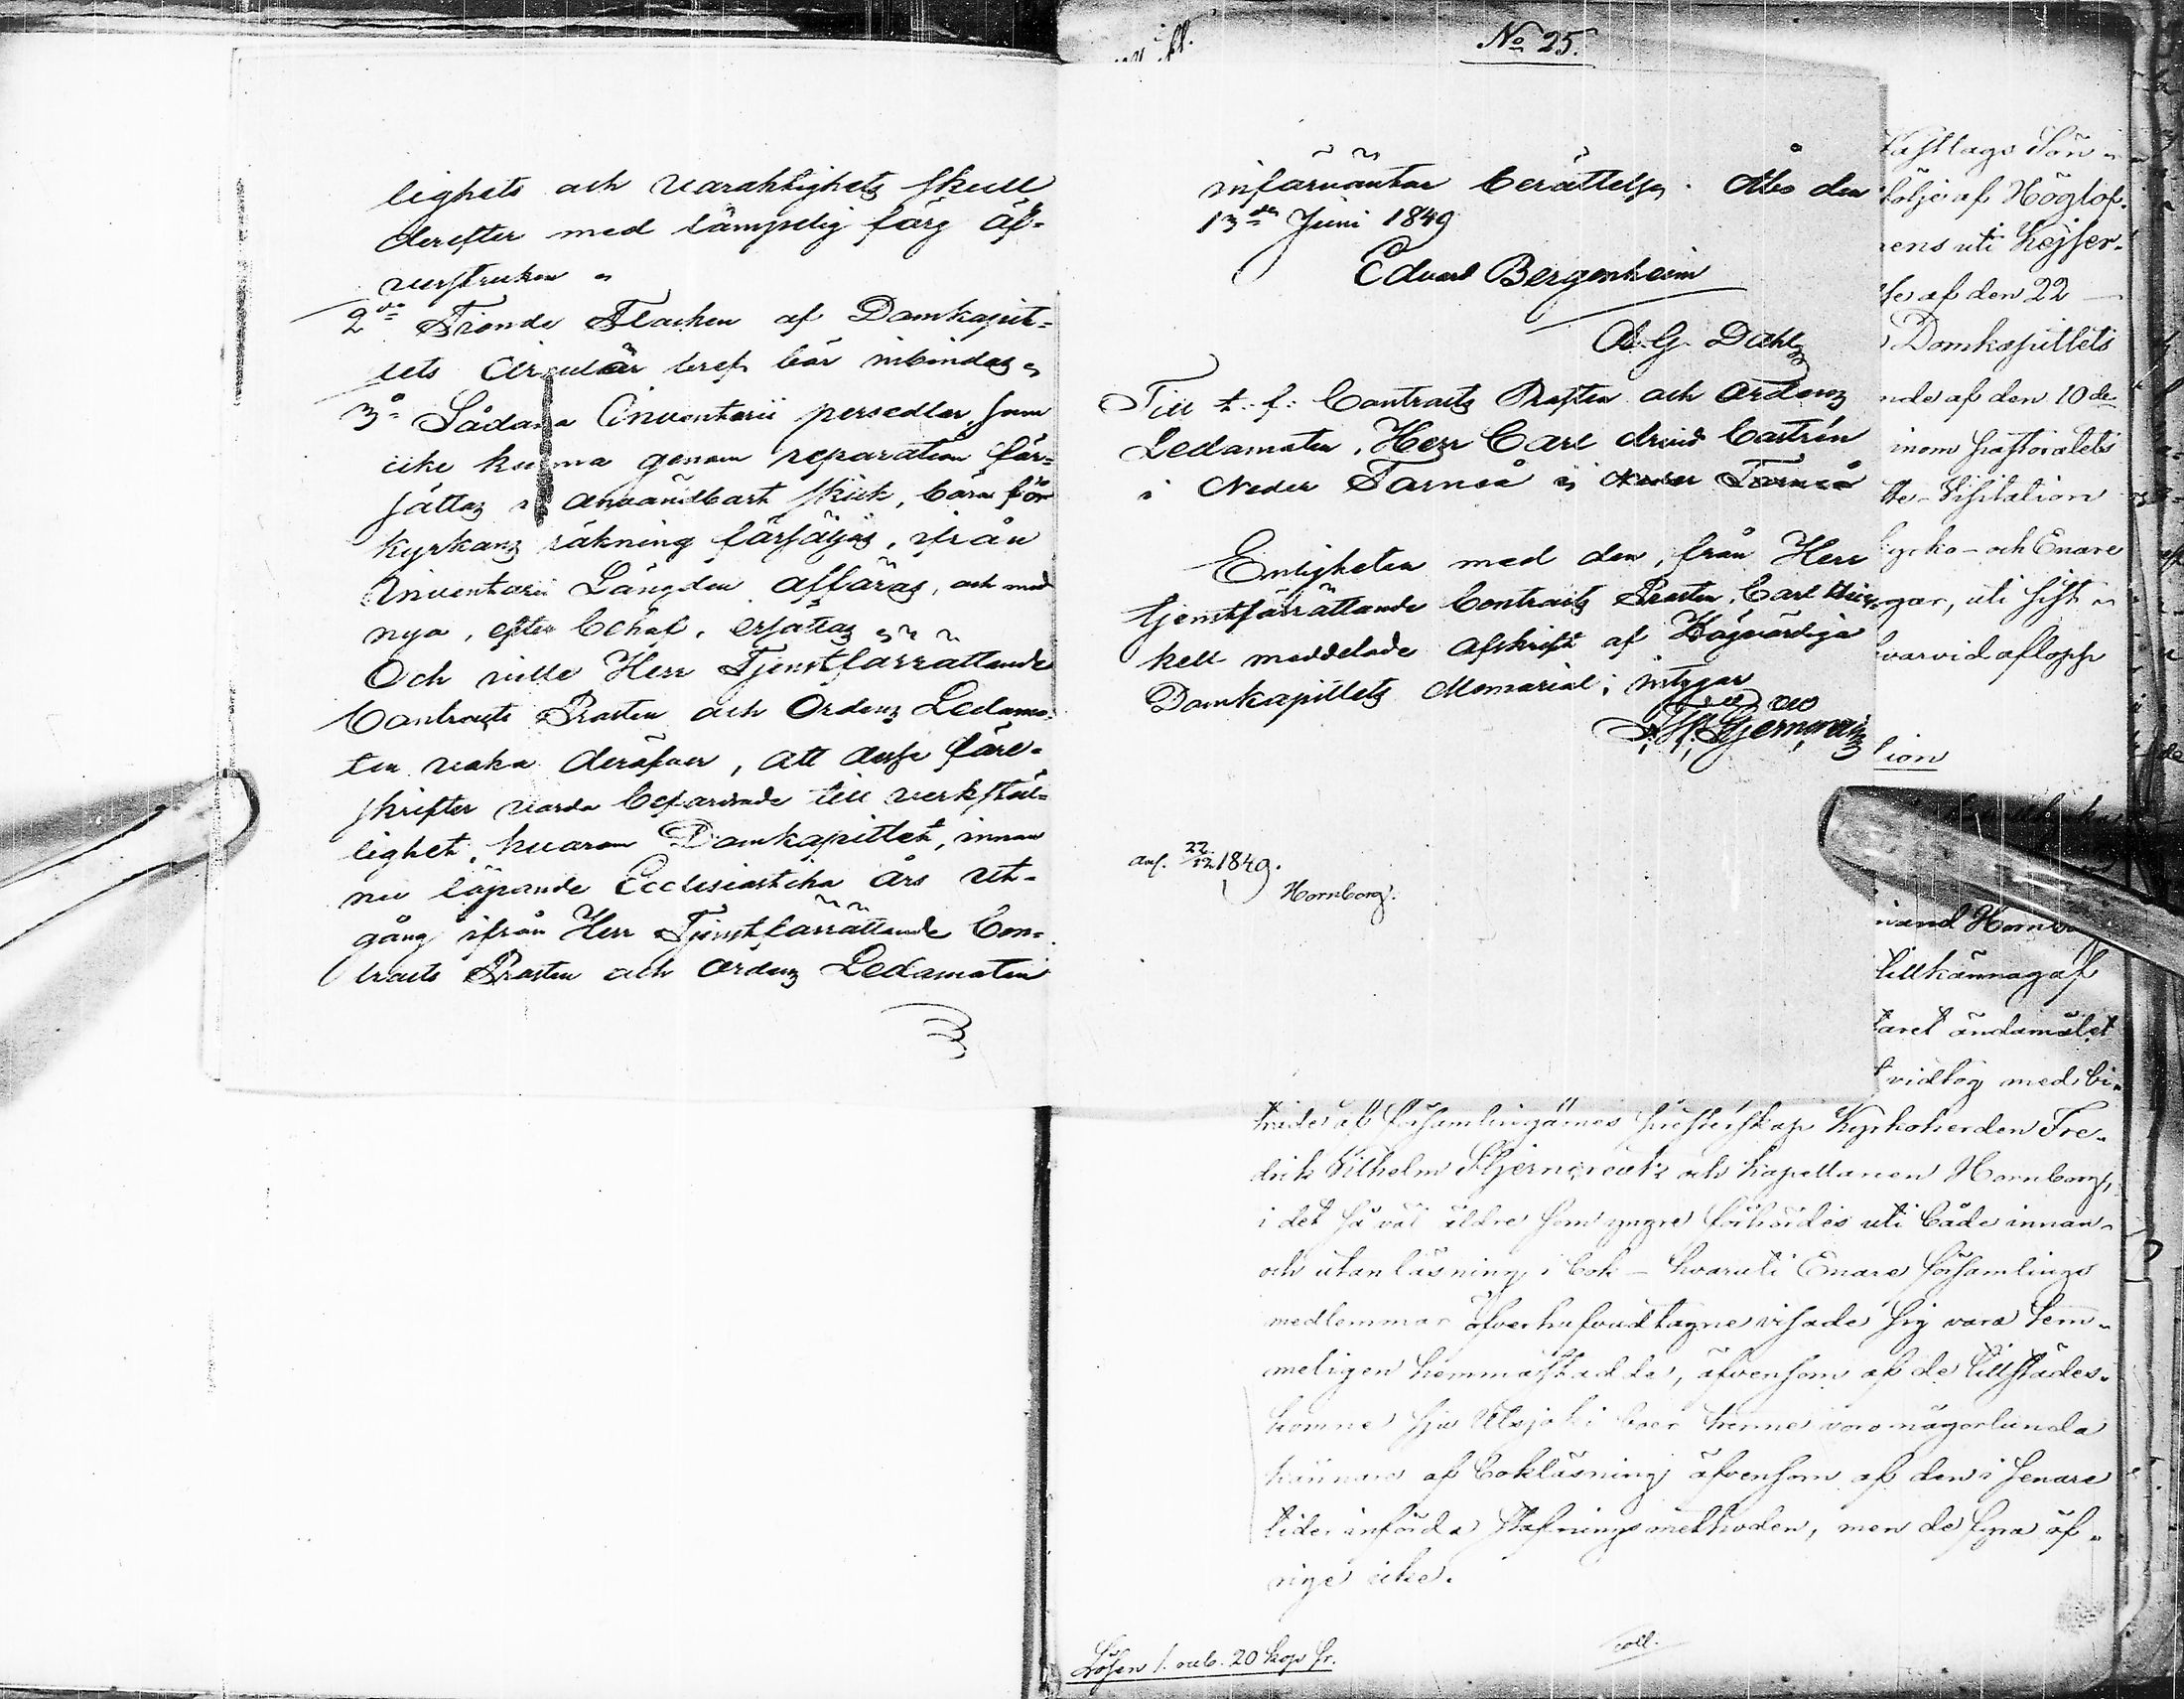 lighets och varaktighets skull
derefter med lämpelig färg öf-
verstruken
2do Trenne Flocken af Domkapit-
lets Circulär bref bör inbindas
3o Sådana Inventarii persedlar, som
icke kunna genom reparation för-
sättas i användbart skick, böra för
kyrkans räkning försäljas, ifrån
Inventarii Längden afföras, och med
nya, efter behof, ersättas
Och ville Herr Tjenstförrättande
Contracts Prosten och Ordens Ledamo-
ten vaka deröfver, att desse före-
skrifter varda befordrade till verkstäl-
lighet, hvarom Domkapitlet, innan
nu löpande Ecclesiastika års ut-
gång ifrån Herr Tjenstförrättande Con-
tracts Prosten och Ordens Ledamoten
No 25.
införväntar berättelse. Åbo den
13de Juni 1849
Edvard Bergenheim
A. G. Dahl
Till t. f. Contracts Prosten och Ordens
Ledamoten, Herr Carl Castrén
i Neder Torneå
Enligheten med den, från Herr
tjenstförrättande Contracts Prosten, Carl
meddelade afskrift af Högvördiga
Domkapitlets Memorial; intygar
Stjerncreutz
anf. 22/12 1849.
Hornborg.
Höglof-
uti Kejser-
af den 22
Domkapitlets
af den 10de
inom pastoratets
Visitation
och Enare
uti sist
varvid aflopp
Hornborg
tillkännagaf
ändamålet
vidtog med bi-
träde af församlingarnes presterskap Kyrkoherden Fre-
drik Vilhelm Stjerncreutz och Kapellanen Hornborg,
i det så väl äldre som yngre förhördes uti både innan-
och utanläsning i bok – hvaruti Enare församlings
medlemmar öfverhufvudtagne visade sig vara tem-
meligen hemmastadde, äfvensom af de tillstädes-
komne sju Utsjoki boer trenne voro någorlunda
kännare af bokläsning äfvensom af den i senare
tider införda stafningsmethoden, men de fyra öf-
rige icke.
Lösen 1. rub. 20 kop sr.
coll.